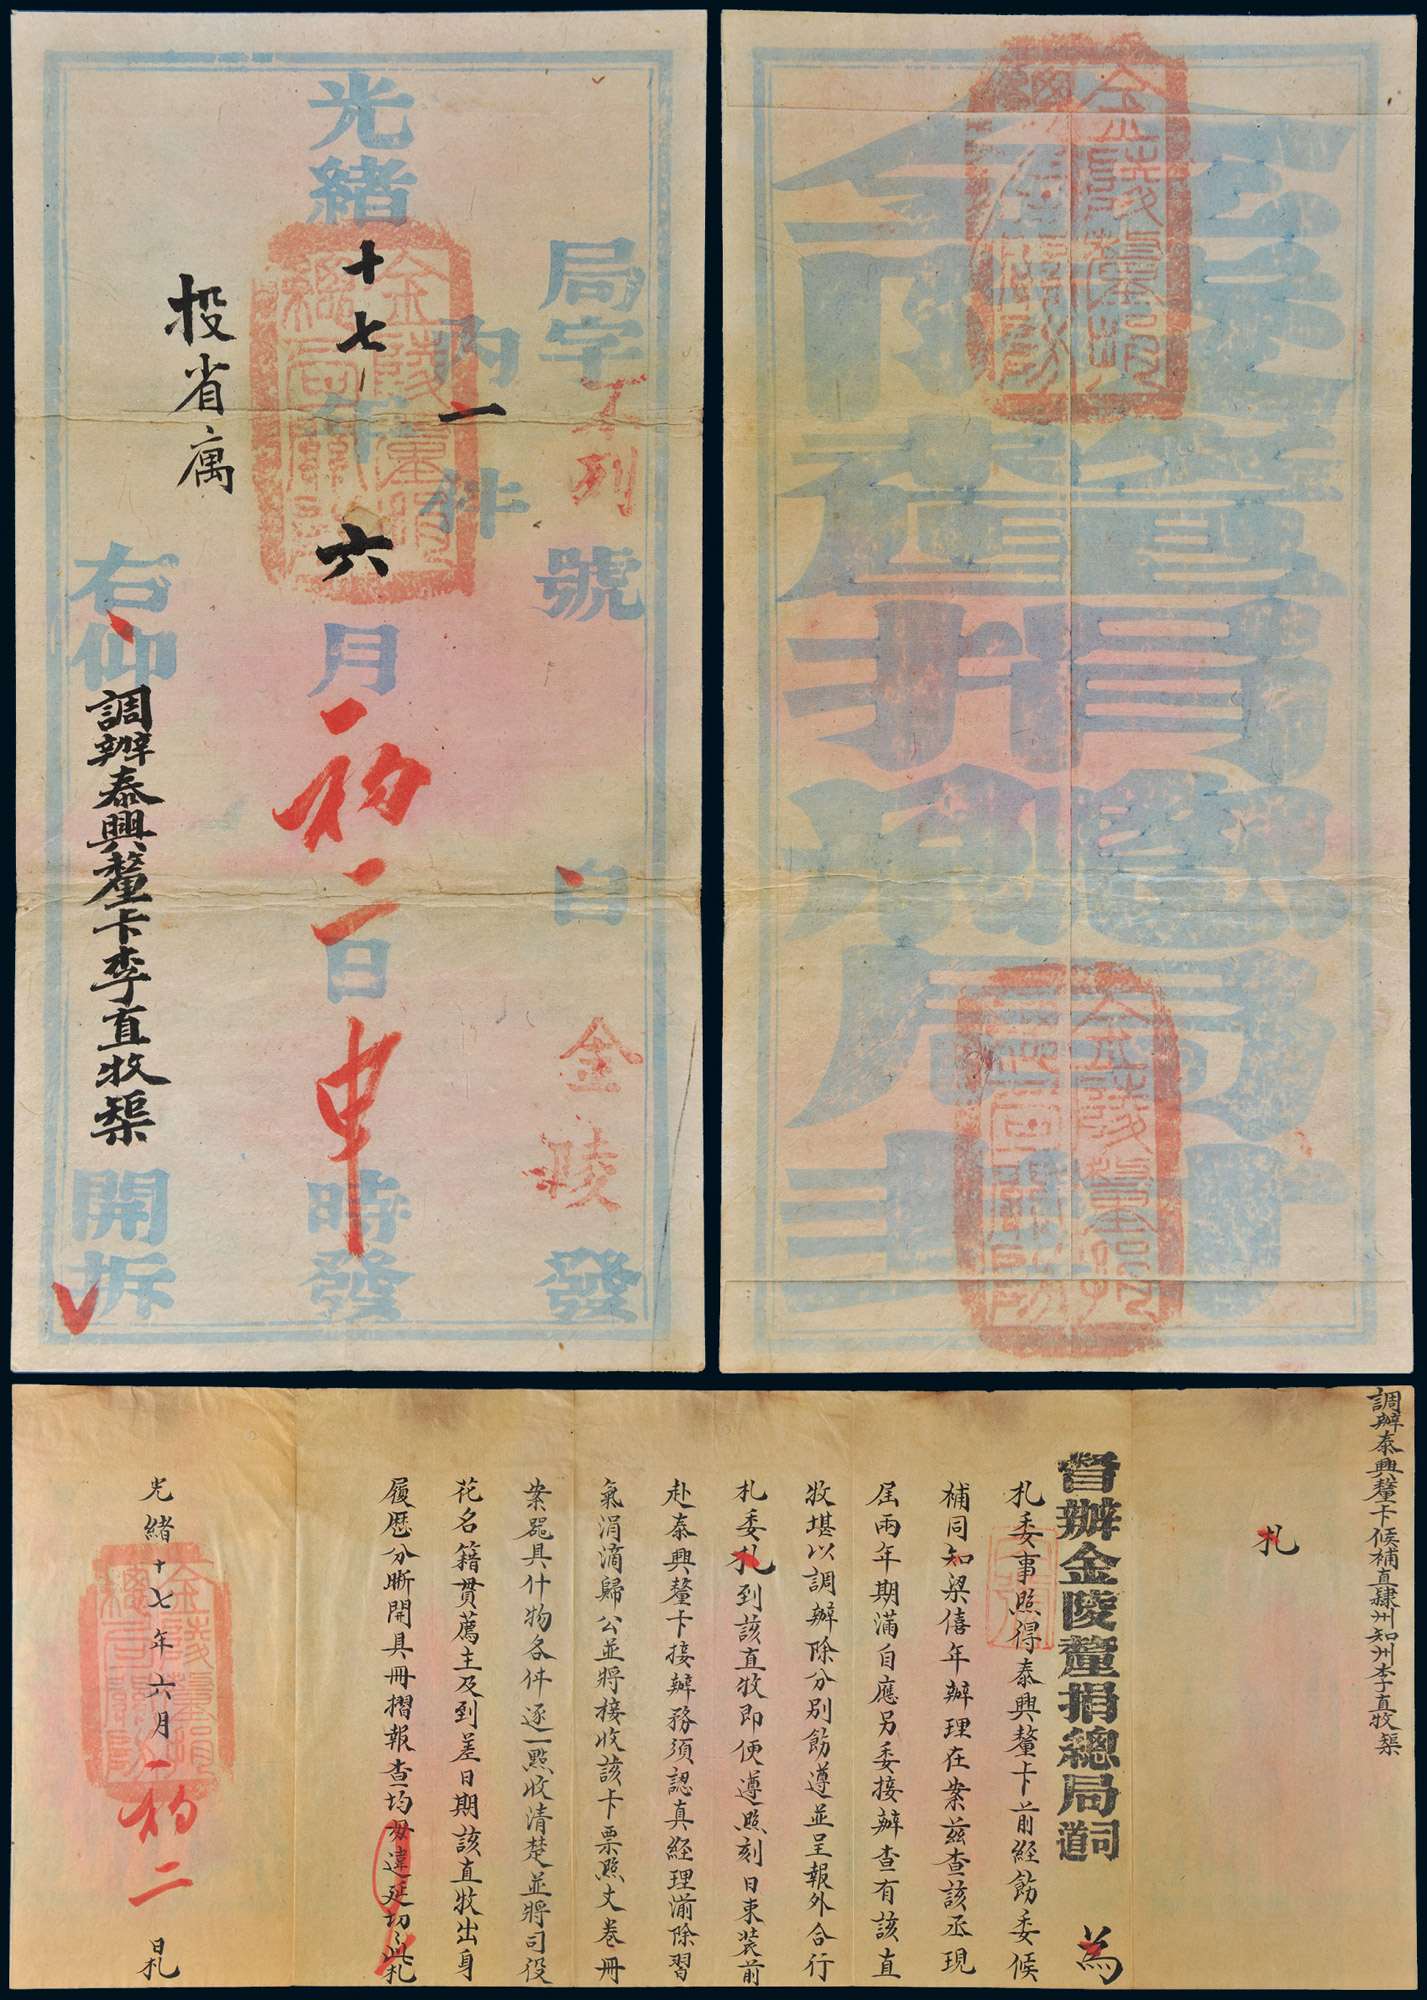 局字不列號 自金陵發
內一件
光緒十七年六月初二日申時發
投省寓
右仰調辦泰興釐卡李直牧榘開拆
金陵釐捐總局
金陵釐捐總局
調辦泰興釐卡候補直隸州知州李直牧榘
札
督辦金陵釐捐總局司道 為
札委事照得泰興釐卡前經飭委候
補同知梁僖年辦理在案茲查該丞現
屆兩年期滿自應另委接辦查有該直
牧堪以調辦除分別飭遵並呈報外合行
札委札到該直牧即便遵照刻日束裝前
赴泰興釐卡接辦務須認真經理湔除習
氣涓滴歸公並將接收該卡票照文卷冊
案器具什物各件逐一點收清楚並將司役
花名籍貫薦主及到差日期該直牧出身
履歷分晰開具冊摺報查均毋違延切切此札
光緒十七年六月初二日札